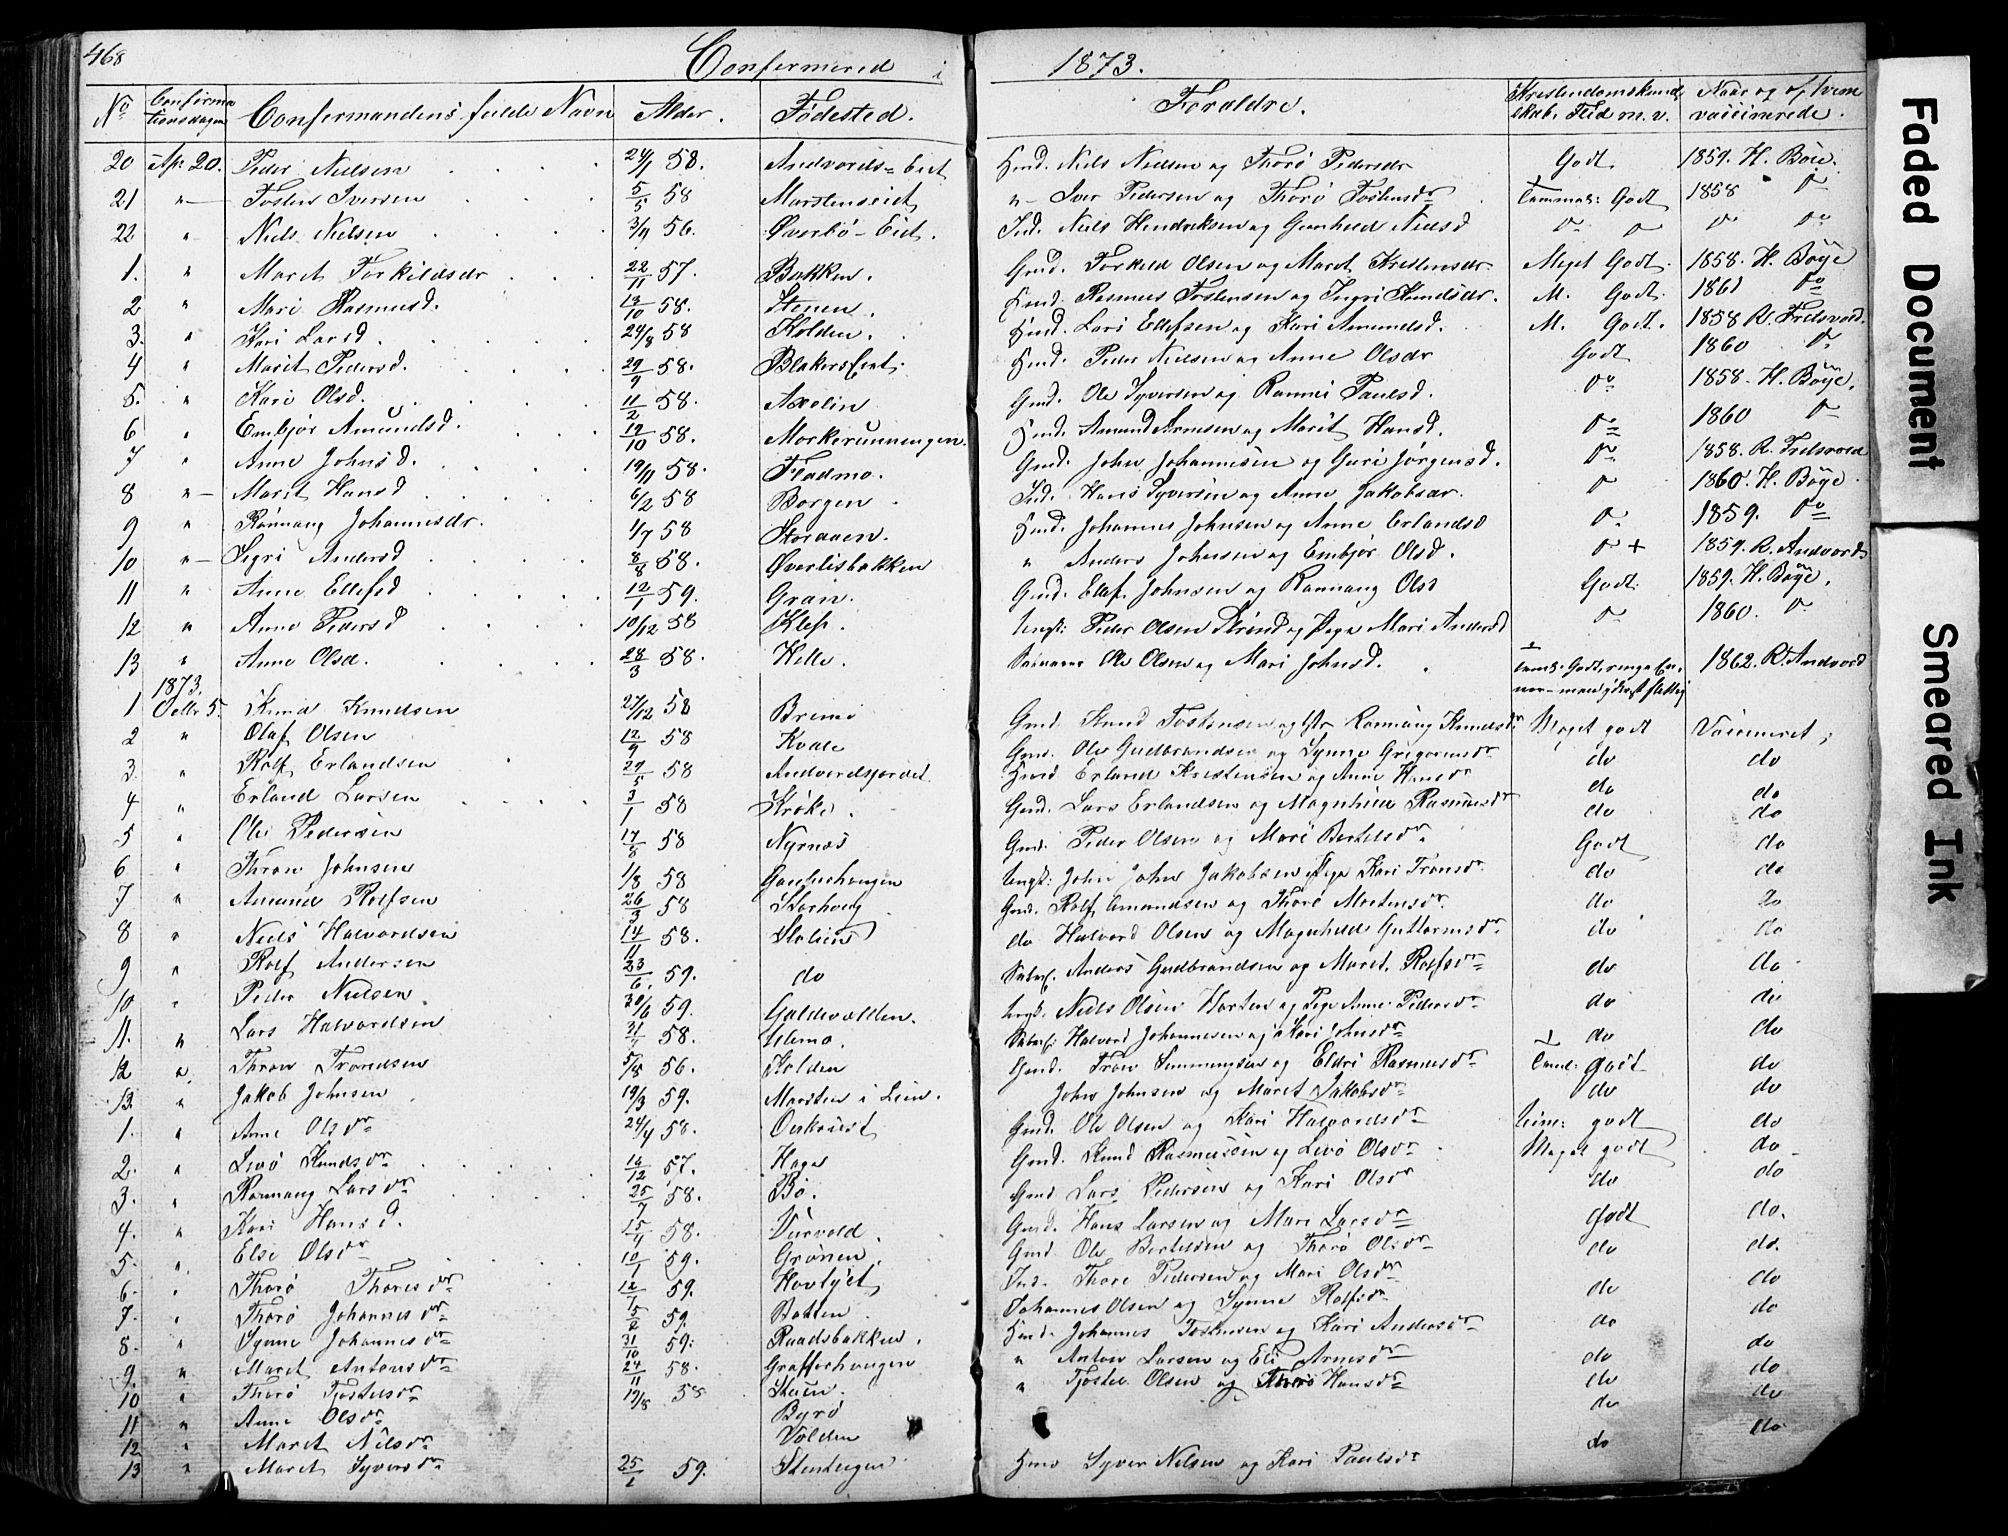 468 Confermered i 1873.
No Confirmationsdagen Confermandens fulde Navn Alder. Fødested. Foraldre. Kristendomskundskab. Flid m. v. Naar og af hvem vaccinerede.
20 Apr. 20. Peder Nielsen 24/1 58. Andvords-Eiet Hmd. Niels Nielsen og Thorø Pedersdr Godt 1859. H. Böie.
21 " Tosten Iversen 5/5 58 Marstenseiet "- Iver Pedersen og Thorø Tostensdr Temmel: Godt 1858 do
22 " Niels Nielsen 3/9 56. Øverbö-Eiet. Ind. Niels Hendriksen og Gunhild Nielsd do do do do
1. " Maret Torkildsdr 22/11 57. Bakken. Gmd. Torkild Olsen og Maret Kristensdr. Meget Godt. 1858. H. Böye
2 " Mari Rasmusd. 13/10 58. Stenen. Hmd. Rasmus Tostensen og Ingri Knudsdr. M. Godt. 1861 do
3. " Kari Larsd. 24/8 58 Kolden. Hmd. Lars Ellefsen og Kari Amundsd. M. Godt. 1858 R. Fredsvold.
4 " Marit Pedersd. 29/9 58. Blakers Eiet. Hmd. Peder Nielsen og Anne Olsdr Godt 1860 do
5. " Kari Olsd. 11/2 58. Axelin Gmd. Ole Syversen og Rannei Paulsd. do 1858. H. Böye.
6 " Embjør Amundsd. 12/10 58. Morkerunningen. Hmd. Amund Arnesen og Marit Hansd. do 1860 do
7 " Anne Johnsd. 19/11 58. Fladmo. Gmd. John Johannesen og Guri Jørgensd. do 1858. R. Fredsvold
8 "- Marit Hansd 6/2 58 Borgen. Ind. Hans Syversen og Anne Jakobsdr. do 1860. H. Böye.
9 " Rønnang Johannesdr. 1/7 58 Storaaen. Hmd. Johannes Johnsen og Anne Erlandsd do 1859. do
10 "- Sigri Andersd 8/8 58. Øverlisbakken " Anders Johnsen og Embjør Olsd. do + 1859. R. Andvord
11 " Anne Ellefsd 12/1 59. Gran. Gmd. Ellef Johnsen og Rannang Olsd Godt. 1859. H. Böye.
12 " Anne Pedersd 10/12 58 Klef. Ungk: Peder Olsen Strind og Pige Mari Andersd do 1860. do
13 " Anne Olsd. 28/3 58. Helle. Ole Olsen og Mari Johnsd. 1862. R. Andvord
1873.
1 Octbr 5. Knud Knudsen 27/12 58 Bremo Gmd. Knud Tostensen og Rannang Knudsdr Meget godt Vaccineret.
2 " Olaf Olsen 12/9 58 Kvale Gmd. Ole Gudbrandsen og Synne Gregoriusdr do do
3. " Rolf Erlandsen 29/5 58 Andvordsjordet Hmd Erland Kristensen og Anne Hansdr do do
4 " Erland Larsen 3/1 58 Krøke. Gmd. Lars Erlandsen og Magnhild Rasmusdr do do
5 " Ole Pedersen 17/8 58 Nyrnæs Gmd. Peder Olsen og Mari Bertelsdr Godt do
6 " Thron Johnsen 1/8 58 Ungk: John Jakobsen og Pige Kari Tronsdr do do
7 " Amund Rolfsen 26/3 58 Storhoug Gmd. Rolf Amundsen og Thorø Mortensdr do do
8 " Niels Halvordsen 14/11 58. Stolien do Halvord Olsen og Magnhild Guttormsdr do do
9 " Rolf Andersen 23/6 59. do Anders Gudbrandsen og Maret Rolfsdr do do
10 " Peder Nielsen 30/6 59. Galdevolden. Ungk. Niels Olsen Horten og Pige Anne Pedersdr do do
11. " Lars Halvordsen 31/7 58. Ulemo. Halvord Johannesen og Kari Johnsdr do do
12 " Thron Trondsen 5/8 56. Kolden Gmd. Tron og Eldri Rasmusdr Tem: godt do
13. " Jakob Johnsen 19/3 59. Marsten i Lien. John Johnsen og Maret Jakobsdr do do
1. " Anne Olsdr 24/4 58. Gmd. Ole Olsen og Kari Halvordsdr Tem: godt do
2. " Livø Knudsdr 16/12 57. Haga Gmd. Knud Rasmussen og Livø Olsdr Meget godt do
3. " Rannang Larsdr 25/7 58. Bø. Gmd Lars Pedersen og Kari Olsdr do do
4. " Kari Hansd. 15/4 58. Durvold. Gmd. Hans Larsen og Mari Larsdr godt do.
5. " Else Olsdr 10/1 59. Grönen. Gmd. Ole Bertelsen og Thorø Olsdr do do.
6. " Thorø Thoresdr 12/1 59. Hovlyet Ind. Thore Pedersen og Mari Olsdr do do
7. " Thorø Johannesdr 15/2 59. Botten Johannes Olsen og Synne Rolfsdr do do
8. " Synne Johannesdr 31/10 59. Raadsbakken. Hmd. Johannes Tostensen og Kari Andersdr do do
9. " Maret Antonsdr 24/11 58. Grafferhougen " Anton Larsen og Eli Arnesdr do do
10 " Thorø Tjostelsdr 19/8 58 Steen. " Tjostel Olsen og Thorø Hansdr do do
11 " Anne Olsdr Byrø do
12 " Maret Nilsdr Volden do
13 " Maret Syversdr 25/1 59. Stenhougen Hmd Syver Nilsen og Kari Paulsdr
Faded Document
Smeared Ink